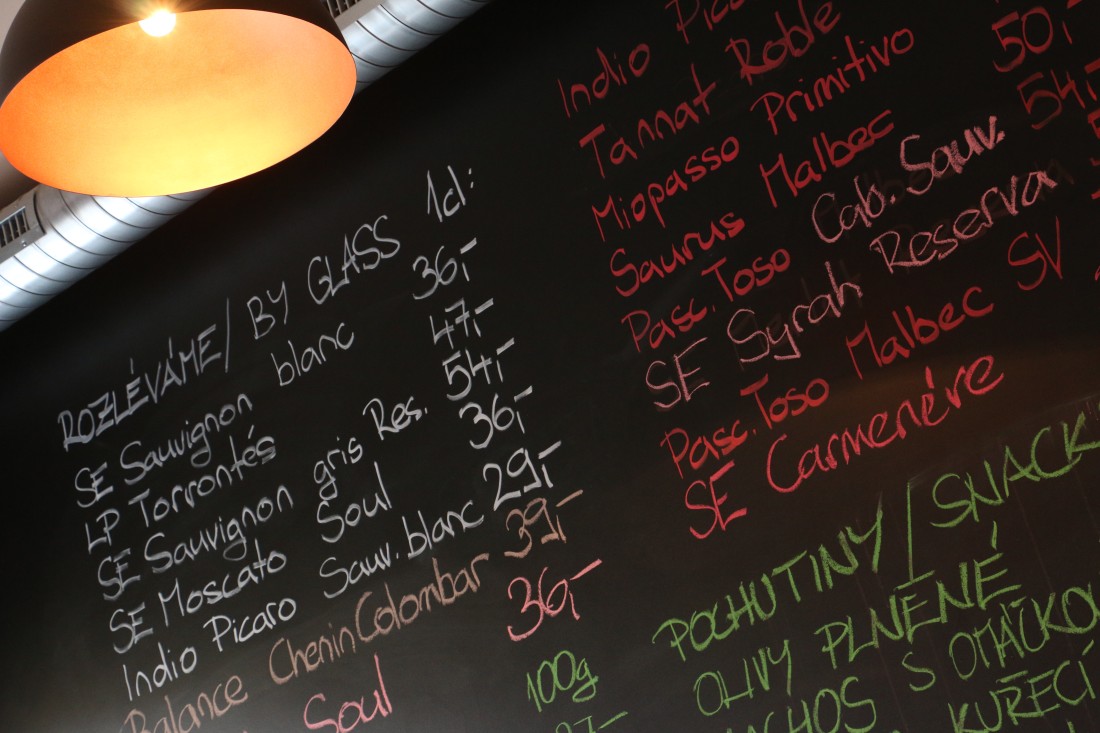 ROZLÉVÁME/ BY GLASS 1dl:
SE Sauvignon blanc 36,-
LP Torrontés 47,-
SE Sauvignon gris Res. 54,-
SE Moscato Soul 36,-
Indio Picaro Sauv. blanc 29,-
Balance Chenin Colombar 39,-
Soul 36,-
Indio
Tannat Roble
Miopasso Primitivo
Saurus Malbec 50,-
Pasc. Toso Cab. Sauv. 54,-
SE Syrah Reserva
Pasc. Toso Malbec SV
SE Carmenére
POCHUTINY/SNACK
100g OLIVY PLNĚNÉ
S
KUŘECÍ